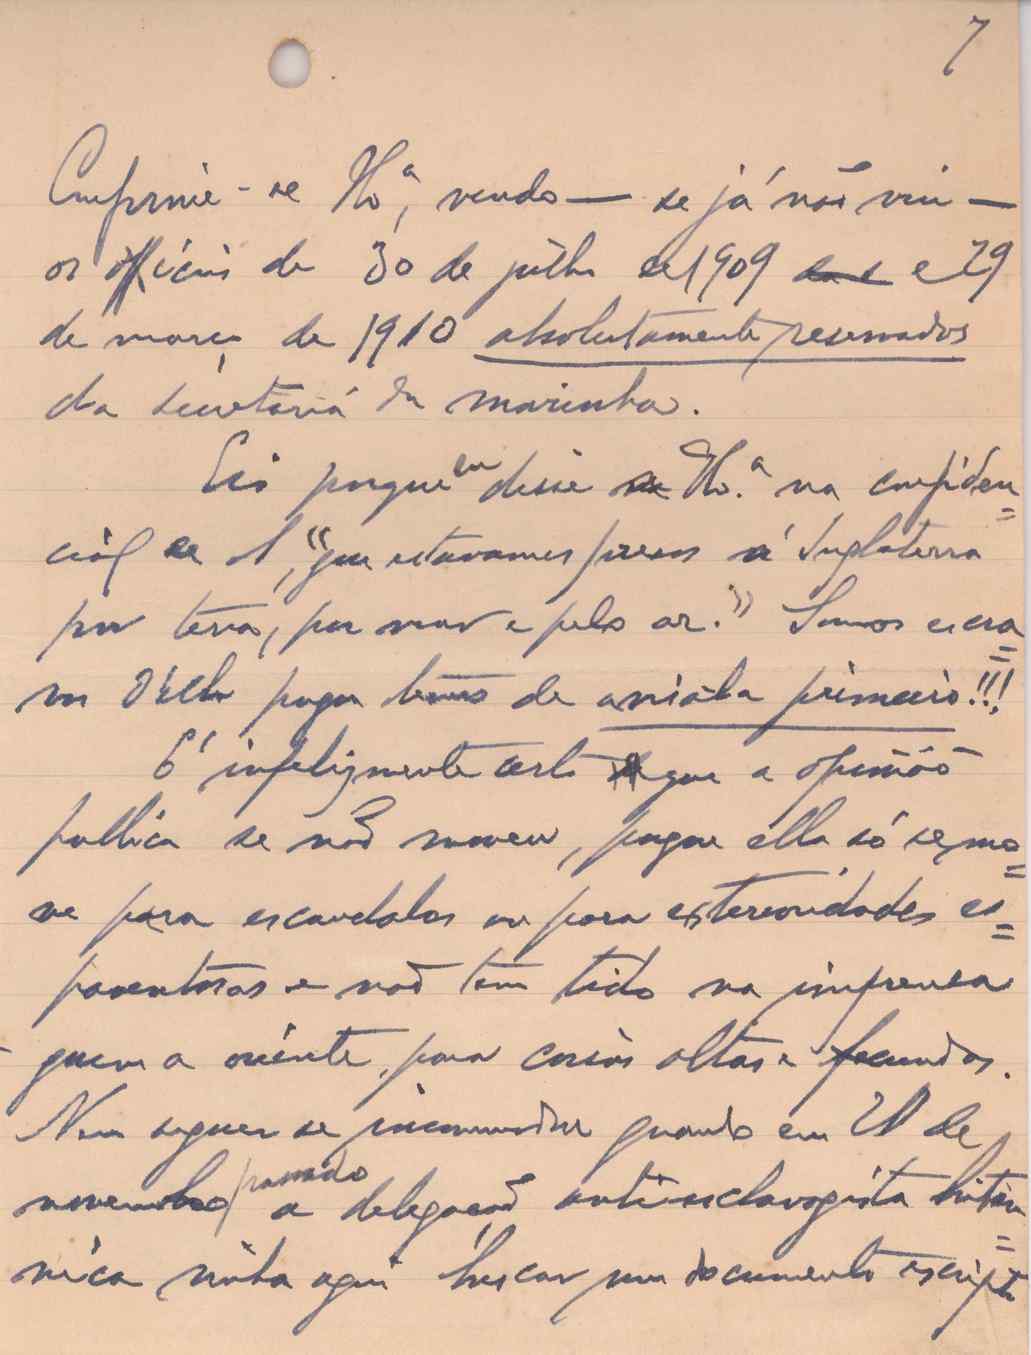 7
se V. Ex.ª, vendo — se já não viu —
os officios de 30 de julho de 1909 e 29
de março de 1910 absolutamente reservados
da secretaria da marinha.
Eis porque eu disse a V. Ex.ª na confiden=
cial de "que estavamos presos á Inglaterra
por terra, por mar e pelo ar." Somos escra
vos pagar de primeiro!!!
É infelizmente certo que a opinião
publica se não moveu, porque ella só se mo=
ve para escandalos ou para exterioridades es=
paventosas e não tem tido na imprensa
quem a oriente para coisas altas e fecundas.
Nem sequer se incommodou quando em de
novembro passado a delegação antiesclavagista britan=
nica vinha aqui buscar um documento escripto